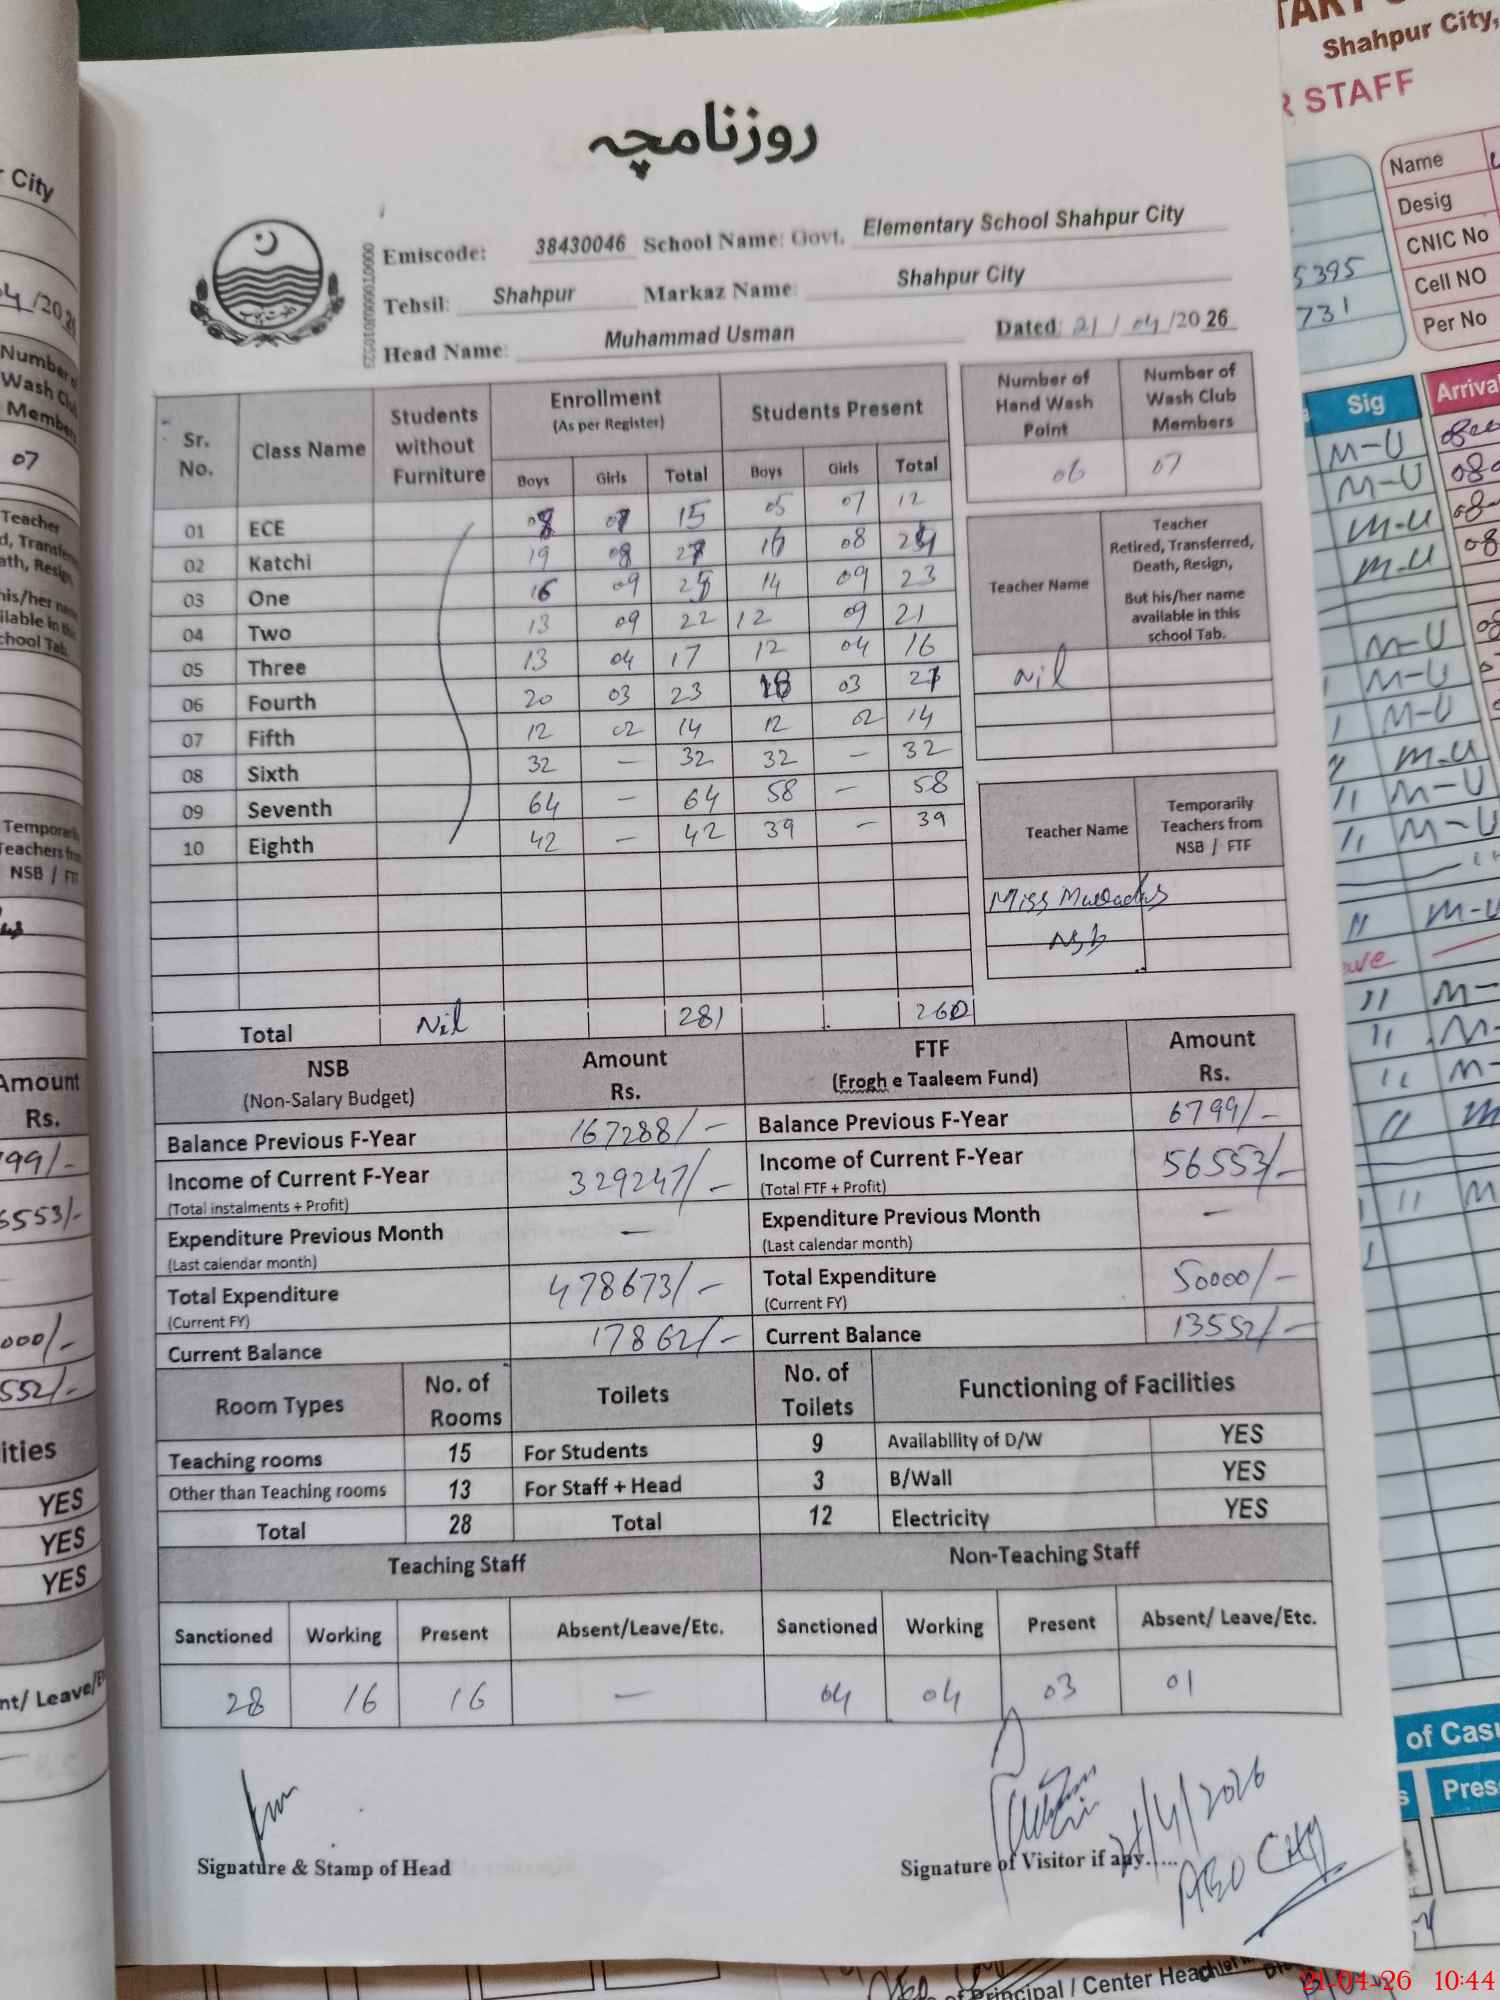 روزنامچہ
Emiscode: 38430046 School Name: Govt. Elementary School Shahpur City
Tehsil: Shahpur Markaz Name: Shahpur City
Head Name: Muhammad Usman Dated: 21/04/2026
Sr. No. Class Name Students without Furniture Enrollment (As per Register) Students Present
Boys Girls Total Boys Girls Total
01 ECE 08 07 15 05 07 12
02 Katchi 19 08 27 16 08 24
03 One 16 09 25 14 09 23
04 Two 13 09 22 12 09 21
05 Three 13 04 17 12 04 16
06 Fourth 20 03 23 18 03 21
07 Fifth 12 02 14 12 02 14
08 Sixth 32 – 32 32 – 32
09 Seventh 64 – 64 58 – 58
10 Eighth 42 – 42 39 – 39
Total Nil 281 260
Number of Hand Wash Point Number of Wash Club Members
06 07
Teacher Name Teacher Retired, Transferred, Death, Resign, But his/her name available in this school Tab.
Nil
Teacher Name Temporarily Teachers from NSB / FTF
Miss
NSb
NSB (Non-Salary Budget) Amount Rs. FTF (Frogh e Taaleem Fund) Amount Rs.
Balance Previous F-Year 167288/- Balance Previous F-Year 6799/-
Income of Current F-Year (Total instalments + Profit) 329247/- Income of Current F-Year (Total FTF + Profit) 56553/-
Expenditure Previous Month (Last calendar month) – Expenditure Previous Month (Last calendar month) –
Total Expenditure (Current FY) 478673/- Total Expenditure (Current FY) 50000/-
Current Balance 17862/- Current Balance 13552/-
Room Types No. of Rooms Toilets No. of Toilets Functioning of Facilities
Teaching rooms 15 For Students 9 Availability of D/W YES
Other than Teaching rooms 13 For Staff + Head 3 B/Wall YES
Total 28 Total 12 Electricity YES
Teaching Staff Non-Teaching Staff
Sanctioned Working Present Absent/Leave/Etc. Sanctioned Working Present Absent/ Leave/Etc.
28 16 16 – 04 04 03 01
Signature & Stamp of Head Signature of Visitor if any.....
21/4/2026
AEO City
Shahpur City,
R STAFF
Name
Desig
CNIC No
Cell NO
Per No
5395
731
Sig Arrival
of Casu
Pres
Principal / Center Head
21-04-26 10:44